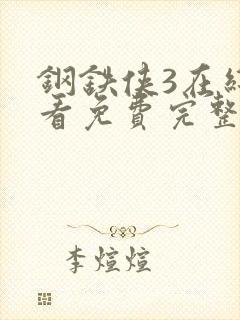 鋼鉄俠3在線
看免費完整
李煊煊